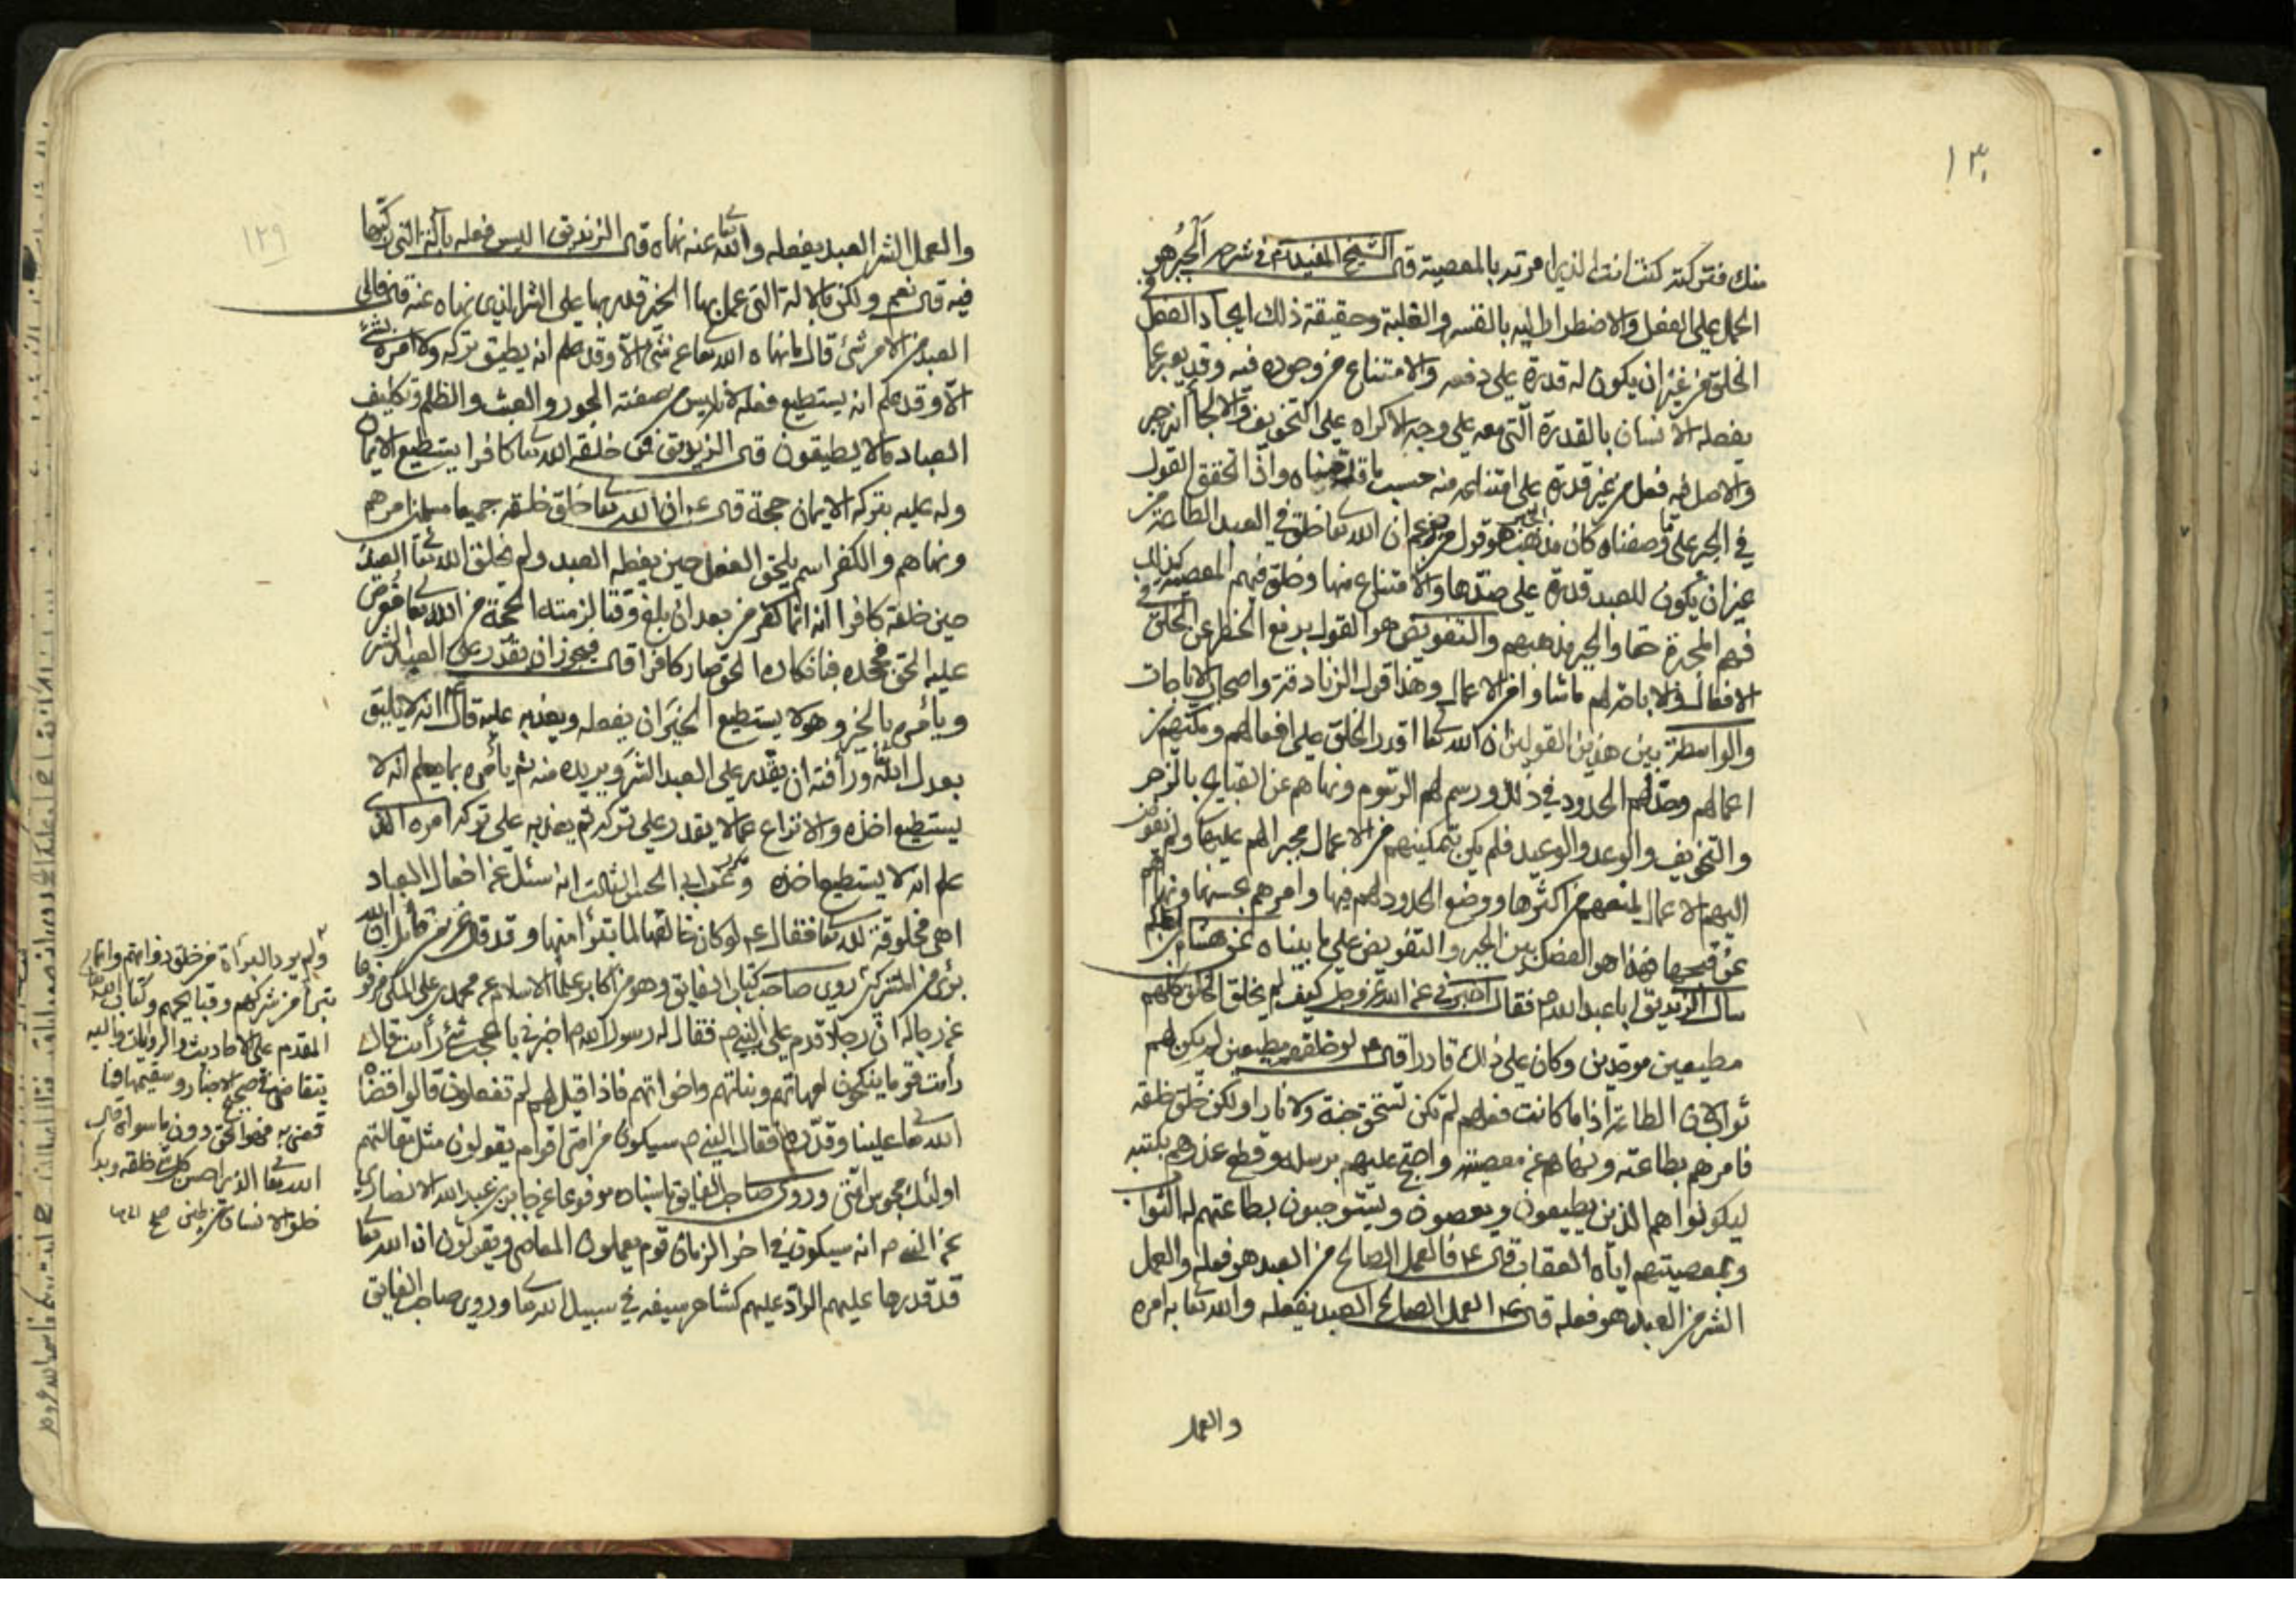 ١٣٠
منك فتركته كنت انت الذي امرته بالمعصية قال الشيخ المفيد ره في شرحه الجبر هو
الحمل على الفعل والاضطرار اليه بالقسر والغلبة وحقيقة ذلك ايجاد الفعل في
الخلق من غير ان يكون له قدرة على دفعه والامتناع من وجوده فيه وقد يعبر عما
يفعله الانسان بالقدرة التي معه على وجه الاكراه على التخويف والالجاء انه جبر
والاصل فيه فعل من غير قدرة على امتناعه منه حسب ما قدمناه واذا تحقق القول
في الجبر على ما وصفناه كان مذهب الجبر هو قول من يزعم ان الله تعا خلق في العبد الطاعة من
غير ان يكون للعبد قدرة على ضدها والامتناع منها وخلق فيهم المعصية كذلك
فهم المجبرة حقا والجبر مذهبهم والتفويض هو القول برفع الحظر عن الخلق في
الافعال والاباحة لهم ما شاؤا من الاعمال وهذا قول الزنادقة واصحاب الاباحات
والواسطة بين هذين القولين ان الله تعا اقدر الخلق على افعالهم ومكنهم من
اعمالهم وحد لهم الحدود في ذلك ورسم لهم الرسوم ونهاهم عن القبايح بالزجر
والتخويف والوعد والوعيد فلم يكن بتمكينهم من الاعمال مجبرا لهم عليها ولم يفوض
اليهم الاعمال لمنعهم من اكثرها ووضع الحدود لهم فيها وامرهم بحسنها ونهاهم
عن قبيحها فهذا هو الفصل بين الجبر والتفويض على ما بيناه عن هشام بن الحكم
سال الزنديق ابا عبد الله ع فقال اخبرني عن الله عز وجل كيف لم يخلق الخلق كلهم
مطيعين موحدين وكان على ذلك قادرا قال ع لو خلقهم مطيعين لم يكن لهم
ثواب لان الطاعة اذا ما كانت فعلهم لم تكن تستحق جنة ولا نارا ولكن خلق خلقه
فامرهم بطاعته ونهاهم عن معصيته واحتج عليهم برسله وقطع عذرهم بكتبه
ليكونوا هم الذين يطيعون ويعصون ويستوجبون بطاعتهم له الثواب
وبمعصيتهم اياه العقاب قال ع فالعمل الصالح من العبد هو فعله والعمل
الشر من العبد هو فعله قال ع العمل الصالح العبد يفعله والله تعا به امره
والعمل
١٢٩
والعمل الشر العبد يفعله والله تعا عنه نهاه قال الزنديق اليس فعله بالآلة التي ركبها
فيه قال نعم ولكن بالآلة التي عمل بها الخير قدر بها على الشر الذي نهاه عنه قال فالى
العبد من الامر شئ قال ما نهاه الله تعا عن شئ الا وقد علم انه يطيق تركه ولا امره بشئ
الا وقد علم انه يستطيع فعله لانه ليس من صفته الجور والعبث والظلم وتكليف
العباد ما لا يطيقون قال الزنديق فمن خلقه الله تعا كافرا يستطيع الايمان
وله عليه بتركه الايمان حجة قال ع ان الله تعا خلق خلقه جميعا مسلمين امرهم
ونهاهم والكفر اسم يلحق الفعل حين يفعله العبد ولم يخلق الله تعا العبد
حين خلقه كافرا انه انما كفر من بعد ان بلغ وقتا لزمته الحجة من الله تعا فعرض
عليه الحق فجحده فبانكاره الحق صار كافرا قال فيجوز ان يقدر على العبد الشر
ويأمره بالخير وهو لا يستطيع الخير ان يفعله ويعذبه عليه قال ع انه لا يليق
بعدل الله ورأفته ان يقدر على العبد الشر ويريده منه ثم يأمره بما يعلم انه لا
يستطيع اخذه والانزاع عما لا يقدر على تركه ثم يعذبه على تركه امره الذي
علم انه لا يستطيع اخذه وعن ابي الحسن الثالث انه سئل عن افعال العباد
اهي مخلوقة لله تعا فقال ع لو كان خالقها لما تبرأ منها وقد قال عز من قائل ان الله
برئ من المشركين روى صاحب كتاب الفايق وهو من اكابر علماء الاسلام عن محمد بن علي المكي مرفوعا
عن رجاله ان رجلا قدم على النبي ص فقال له رسول الله ص اخبرني باعجب شئ رأيت قال
رأيت قوما ينكحون امهاتهم وبناتهم واخواتهم فاذا قيل لهم لم تفعلون قالوا قضاه
الله تعا علينا وقدره فقال النبي ص سيكون من امتي اقوام يقولون مثل مقالتهم
اولئك مجوس امتي وروى صاحب الفايق باسناده مرفوعا عن جابر بن عبد الله الانصاري
عن النبي ص انه سيكون في اخر الزمان قوم يعملون المعاصي ويقولون ان الله تعا
قد قدرها عليهم الراد عليهم كشاهر سيفه في سبيل الله تعا وروى صاحب الفايق
ولم يرد البراءة من خلق ذواتهم وانما
تبرأ من شركهم وقبايحهم وكتاب الله تعا
المقدم على الاحاديث والروايات واليه
يتقاضى في صحيح الاخبار وسقيمها فما
قضى به فهو الحق دون ما سواه قال
الله تعا الذي احسن كل شئ خلقه وبدأ
خلق الانسان من طين صح